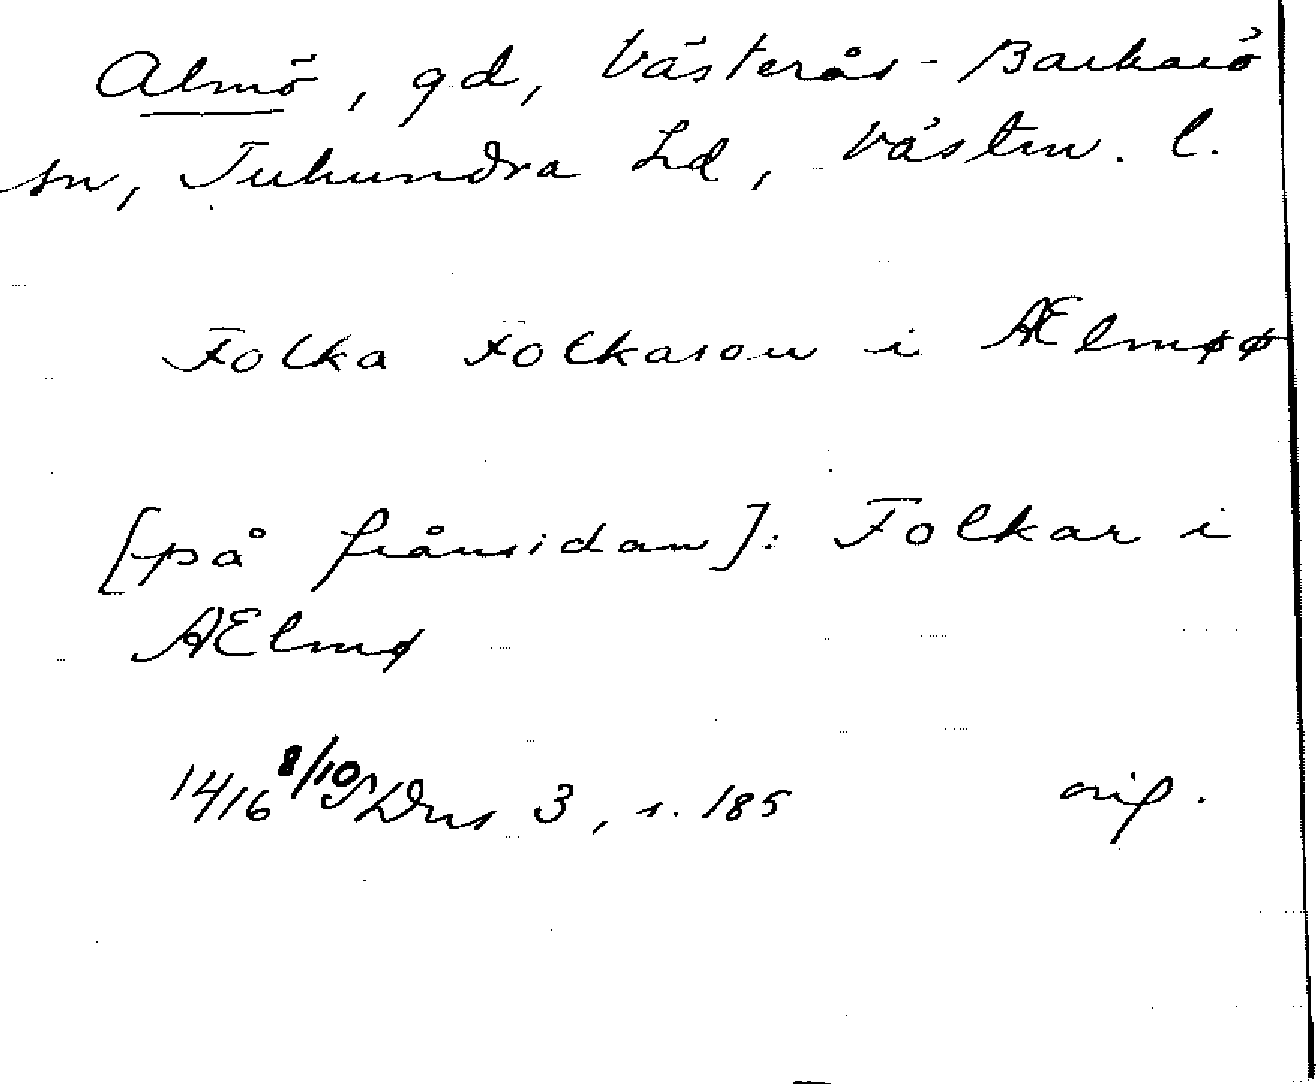 Almö, gd, Västerås-Barkarö
sn, Tuhundra hd, Västm. l.
Folka Folkason i Ælmøø
[på frånsidan]: Folkar i
Ælmø
1416 8/10 SDns 3, s. 185 orig.